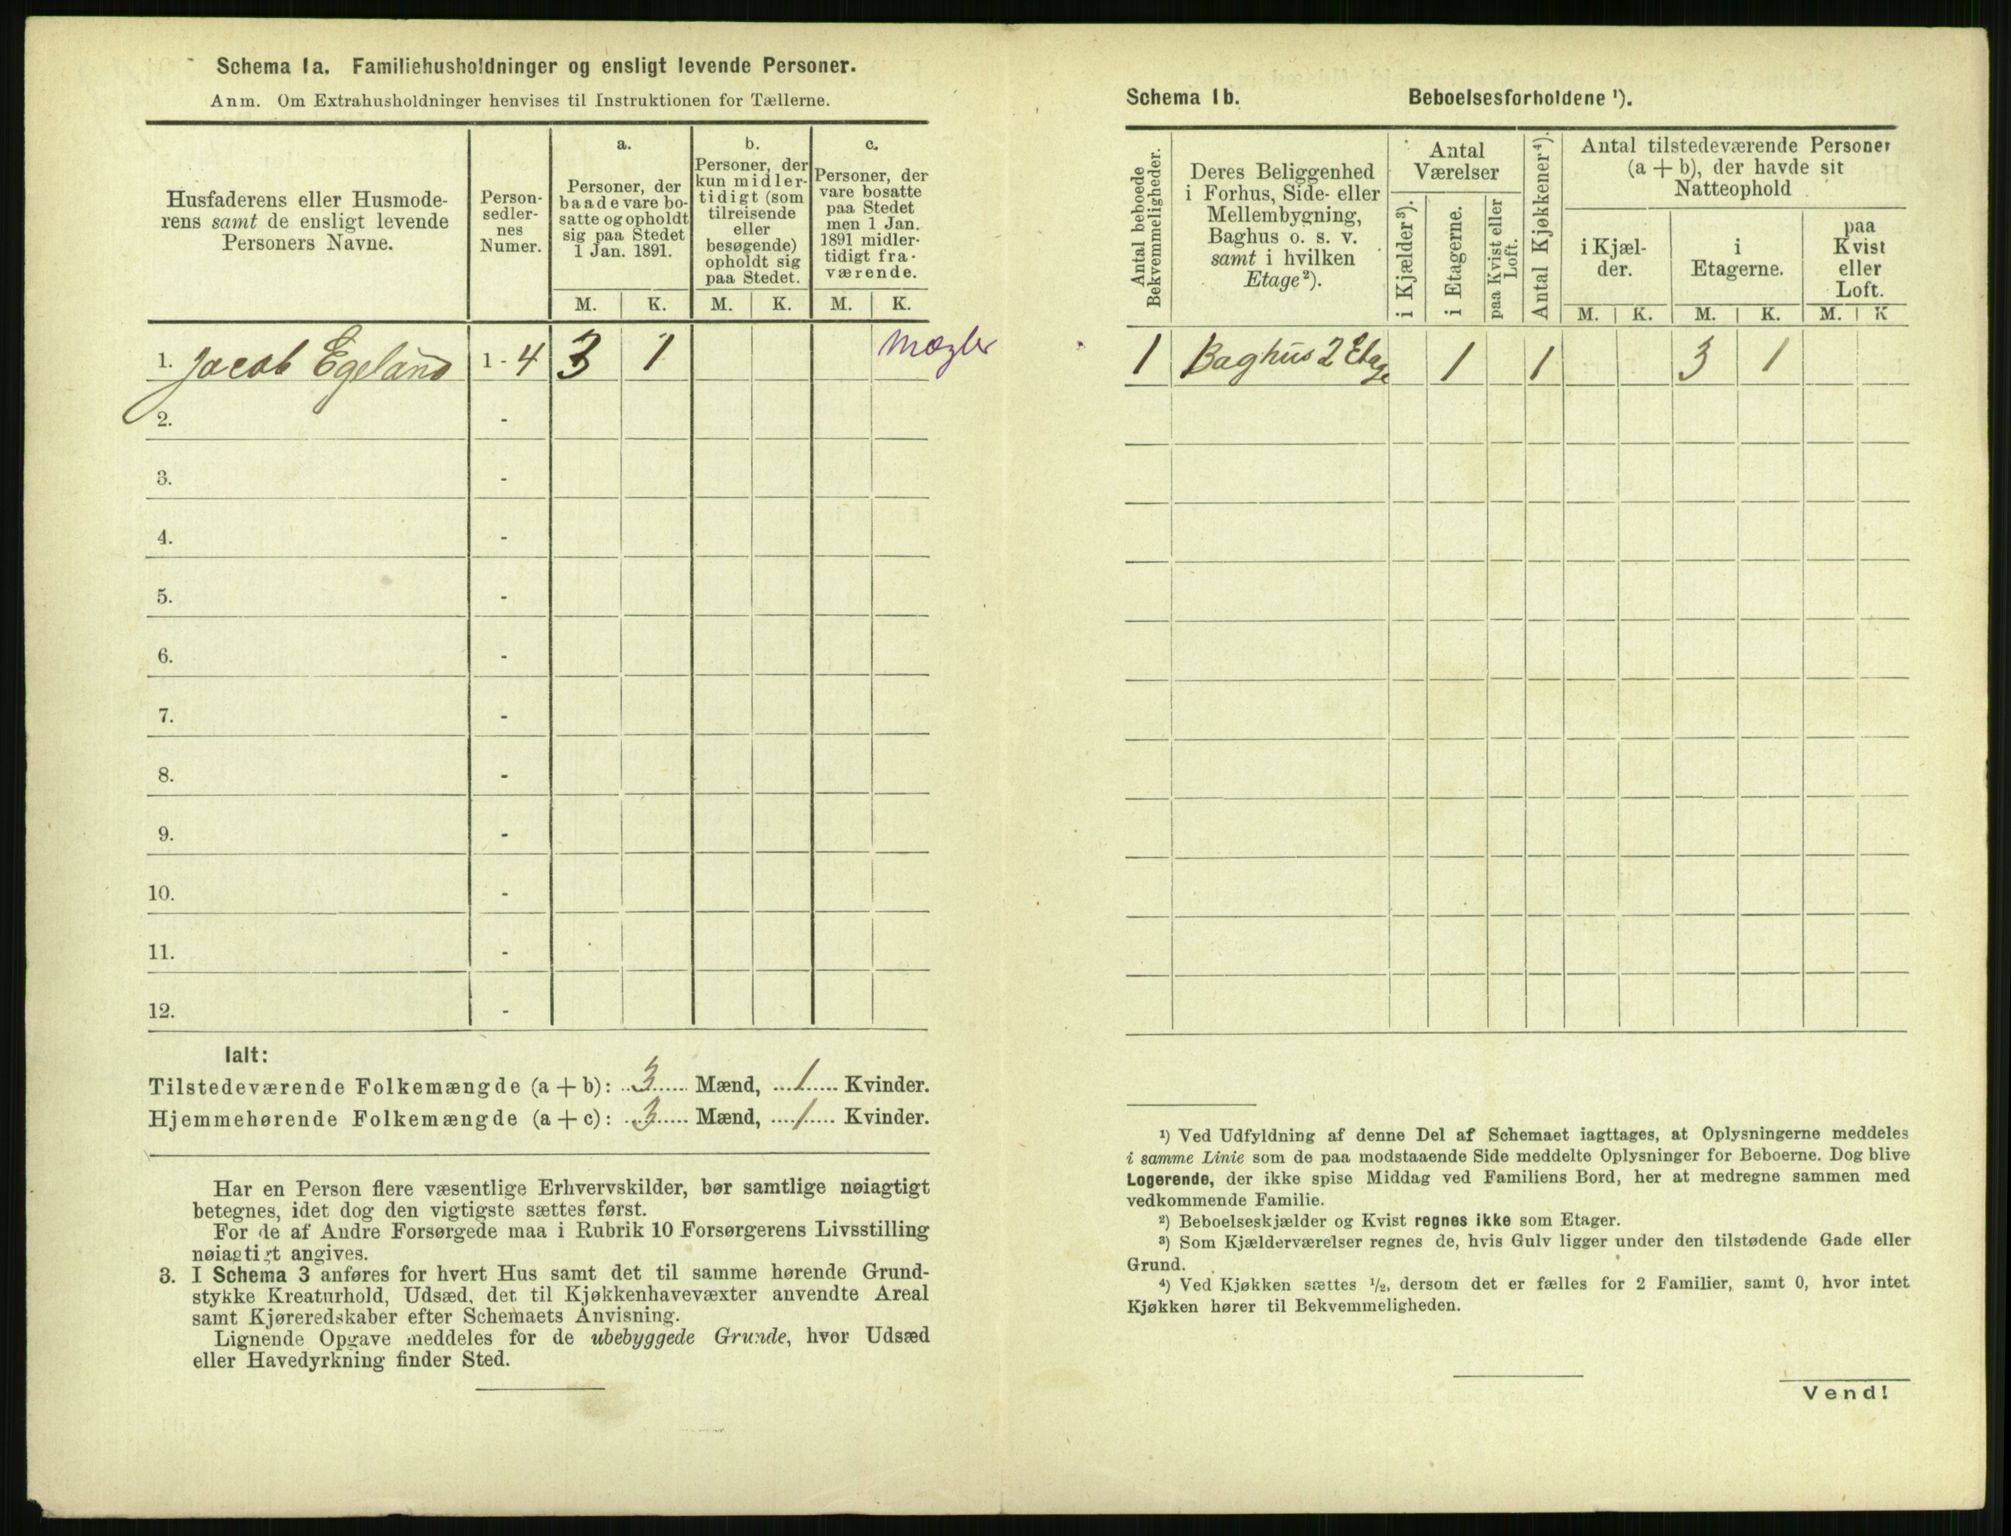 Schema 1a. Familiehusholdninger og ensligt levende Personer.
Anm. Om Extrahusholdninger henvises til Instruktionen for Tællerne.
Husfaderens eller Husmode-
rens samt de ensligt levende
Personers Navne.
Person-
sedler-
nes
Numer.
a.
Personer, der
baade vare bo-
satte og opholdt
sig paa Stedet
1 Jan. 1891.
b.
Personer, der
kun midler-
tidigt (som
tilreisende
eller
besøgende)
opholdt sig
paa Stedet.
c.
Personer, der
vare bosatte
paa Stedet
men 1 Jan.
1891 midler-
tidigt fra-
værende.
M. K. M. K. M. K.
1. Jacob Egeland 1 - 4 3 1 Mægler
2. -
3. -
4. -
5. -
6. -
7. -
8. -
9. -
10. -
11. -
12. -
Ialt:
Tilstedeværende Folkemængde (a + b): 3 Mænd, 1 Kvinder.
Hjemmehørende Folkemængde (a + c): 3 Mænd, 1 Kvinder.
Har en Person flere væsentlige Erhvervskilder, bør samtlige nøiagtigt
betegnes, idet dog den vigtigste sættes først.
For de af Andre Forsørgede maa i Rubrik 10 Forsørgerens Livsstilling
nøiagtigt angives.
3. I Schema 3 anføres for hvert Hus samt det til samme hørende Grund-
stykke Kreaturhold, Udsæd, det til Kjøkkenhavevæxter anvendte Areal
samt Kjøreredskaber efter Schemaets Anvisning.
Lignende Opgave meddeles for de ubebyggede Grunde, hvor Udsæd
eller Havedyrkning finder Sted.
Schema 1b. Beboelsesforholdene ¹).
Antal beboede
Bekvemmeligheder.
Deres Beliggenhed
i Forhus, Side- eller
Mellembygning,
Baghus o. s. v.
samt i hvilken
Etage²).
Antal
Værelser
i Kjælder³).
i Etagerne.
paa Kvist eller
Loft.
Antal Kjøkkener⁴).
Antal tilstedeværende Personer
(a + b), der havde sit
Natteophold
i Kjæl-
der.
i
Etagerne.
paa
Kvist
eller
Loft.
M. K. M. K. M. K
1 Baghus 2 Etage 1 1 3 1
¹) Ved Udfyldning af denne Del af Schemaet iagttages, at Oplysningerne meddeles
i samme Linie som de paa modstaaende Side meddelte Oplysninger for Beboerne. Dog blive
Logerende, der ikke spise Middag ved Familiens Bord, her at medregne sammen med
vedkommende Familie.
²) Beboelseskjælder og Kvist regnes ikke som Etager.
³) Som Kjælderværelser regnes de, hvis Gulv ligger under den tilstødende Gade eller
Grund.
⁴) Ved Kjøkken sættes ½, dersom det er fælles for 2 Familier, samt 0, hvor intet
Kjøkken hører til Bekvemmeligheden.
Vend!